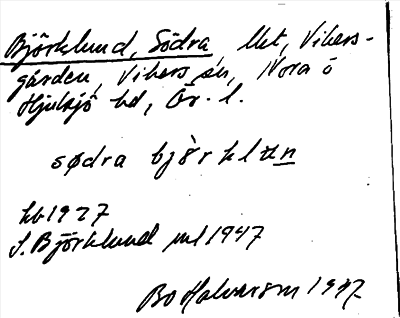 Björklund, Södra, lht, Vikers-
gården, Vikers sn, Nora o
Hjulsjö bd, Ör. l.
sødra bjò̈rklɯn
hb 1927
S. Björklund ml 1947
Bo Halvarson 1947